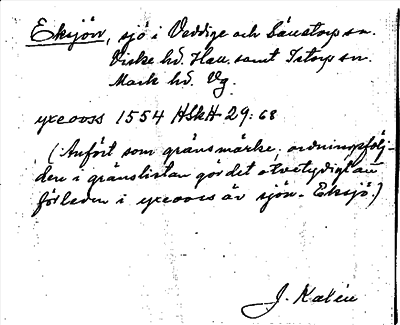 Eksjön, sjö i Veddige och Säustorp sn.
Viske hd. Hall. samt Istorp sn.
Mark hd. Vg.
yxeooss 1554 HSkH 29:68
(Anfört som gränsmärke, ordningsfölj-
den i gränslistan gör det otvetydigt att
förleden i yxeooss är sjön - Eksjö.)
J. Kalén